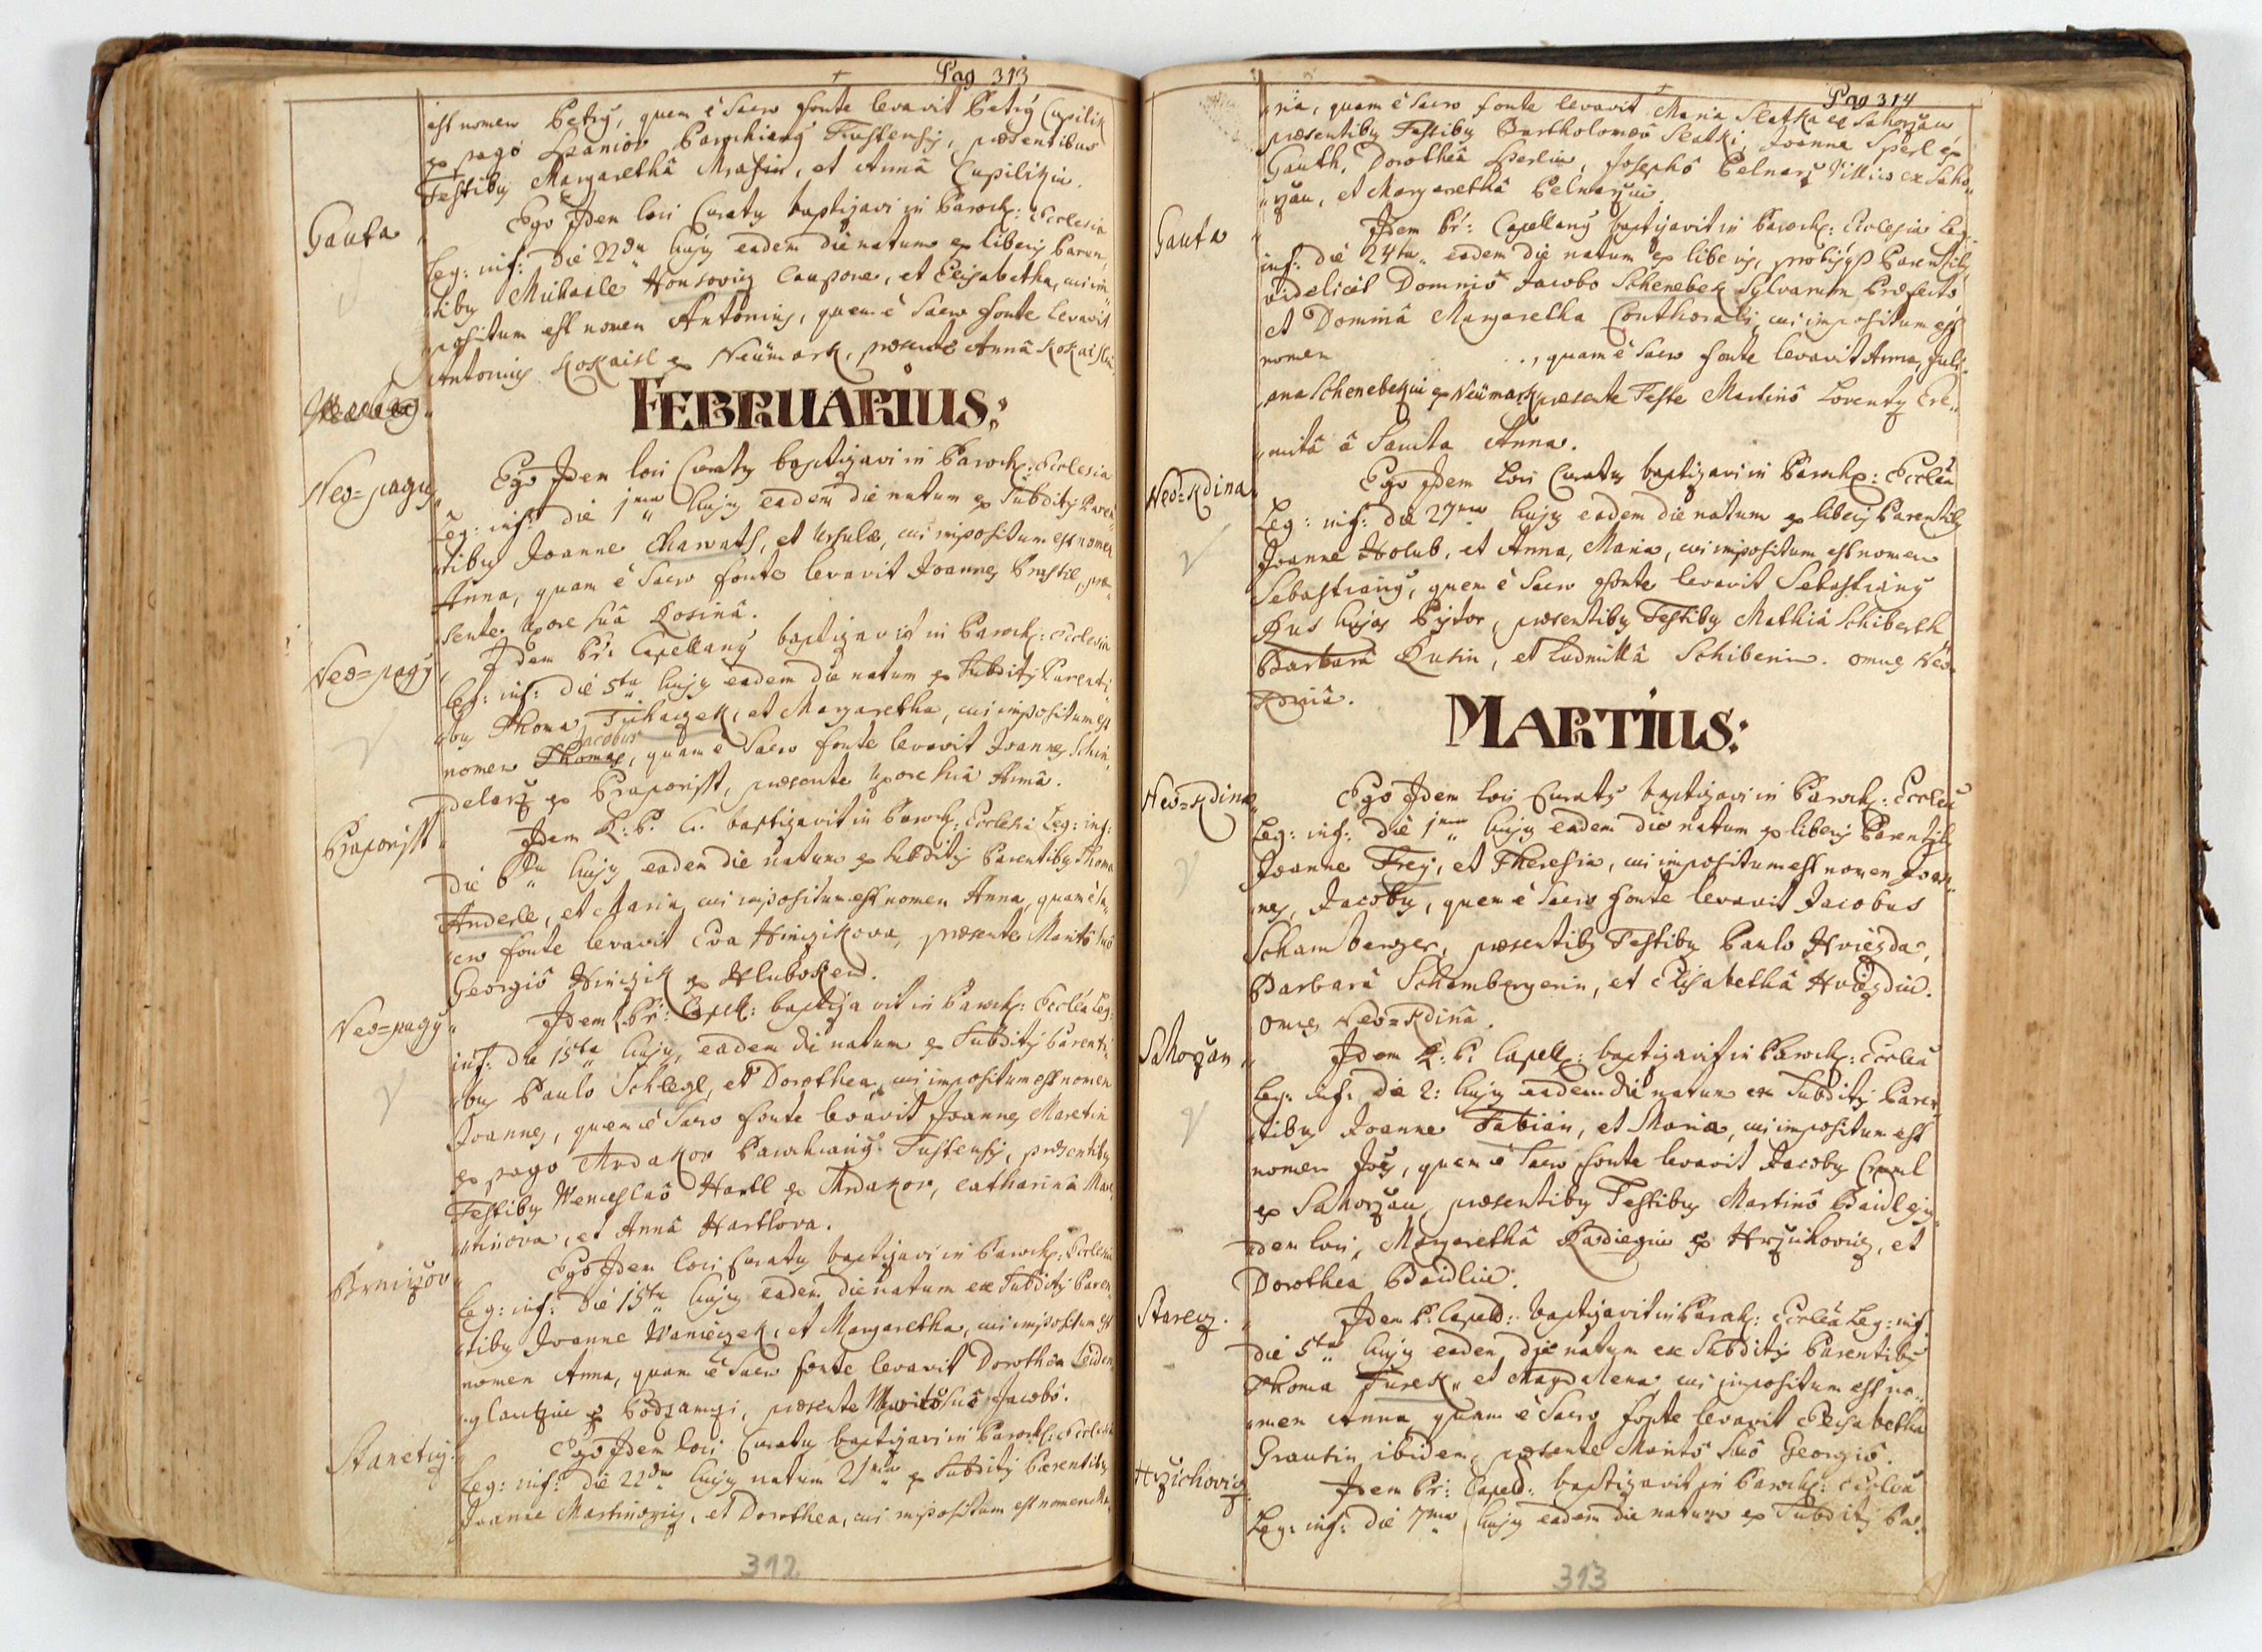 Pag 313
est nomen Petrus, quem è Sacro fonte levavit Petrus Cupilik
ex pago Parochianus Tustensis, præsentibus
Testibus Margarethâ, et Annâ Cupilikin.
Gauta
Ego Idem loci Curatus baptizavi in Paroch: Ecclesia
Leg: inf: die 22da hujus eadem die natum ex liberis Paren„
„tibus Michaele Honsowig Caupone, et Elisabetha, cui im„
„positum est nomen Antonius, quem è Sacro fonte levavit
Antonius Kokaisl ex Neümark, præsente Annâ Kokaislin.
FEBRUARIUS:
Neo=pagus
Ego Idem loci Curatus baptizavi in Paroch: Ecclesia
Leg: inf: die 1ma hujus eadem die natum ex Subditis Paren„
„tibus Joanne Charvath, et Ursula, cui impositum est nomen
Anna, quam è Sacro fonte levavit Joannes, præ„
sente Uxore suâ Rosinâ.
Neo=pagus
Idem Pr: Capellanus baptizavit in Paroch: Ecclesia
Leg: inf: die 5ta hujus eadem die natum ex Subditis Parenti„
„bus Thoma Tichaczek, et Margaretha, cui impositum est
Jacobus
nomen Thomas, quem è Sacro fonte levavit Joannes Schin„
delarz ex Praporisst, præsente Uxore suâ Annâ.
Praporisst
Idem R: P. C. baptizavit in Paroch: Ecclesia Leg: inf:
die 6ta hujus eadem die natum ex Subditis Parentibus Thoma
Anderle, et Maria, cui impositum est nomen Anna, quam è Sa„
„cro fonte levavit Eva Hinzikova, præsente Maritô suô
Georgiô Hinzik ex Hluboken.
Neo=pagus
Idem Pr: Capell: baptizavit in Paroch: Ecclea Leg:
inf: die 15ta hujus, eadem die natum ex Subditis Parenti„
„bus Paulo Schlegl, et Dorothea, cui impositum est nomen
Joannes, quem è Sacro fonte levavit Joannes Maretin
ex pago Mrdakov Parochianus Tustensis, præsentibus
Testibus Wenceslaô Hartl ex Mrdakov, Catharinâ Mare„
„tinova, et Annâ Hartlova.
Brnirzov
Ego Idem loci Curatus baptizavi in Paroch: Ecclesia
Leg: inf: die 15ta hujus eadem die natum ex Subditis Paren„
„tibus Joanne Waniczek, et Margaretha, cui impositum est
nomen Anna, quam è Sacro fonte levavit Dorothea
ex Podzamczi, præsente Maritô suô Jacobô.
Stanetiz
Ego Idem loci Curatus baptizavi in Paroch: Ecclesia
Leg: inf: die 22da hujus natum 21ma ex Subditis Parentibus
Joanne Martinoviz, et Dorothea, cui impositum est nomen Ma„
312
Pag 314
„ria, quam è Sacro fonte levavit Maria Slatka ex Sahorzan,
præsentibus Testibus Bartholomeô Slatki, Joanne Sperl ex
Gauth, Dorotheâ Sperlin, Josephô Pelnarz Villico ex Saho„
„rzan, et Margarethâ Pelnarzin.
Gauta
Idem Pr: Capellanus baptizavit in Paroch: Ecclesia Leg:
inf: die 24ta eadem die natum ex liberis, Parentibus
videlicet Dominô Jacobo Schenebek Sylvarum Præfectô
et Dominâ Margaretha Conthorali, cui impositum est
nomen . ., quam è Sacro fonte levavit Anna, Juli„
„ana Schenebekin ex Neümark præsente Teste Martinô Lorentz Ere„
„mitâ â Sancta Anna.
Neo=Kdina
Ego Idem loci Curatus baptizavi in Paroch: Ecclea
Leg: inf: die 27ma hujus eadem die natum ex liberis Parentibus
Joanne Holub, et Anna, Maria, cui impositum est nomen
Sebastianus, quem è Sacro fonte levavit Sebastianus
Kus hujas Pistor, præsentibus Testibus Mathiâ Schiberth
Barbarâ Kusin, et Ludmillâ Schiberin. omnes Neo„
Kdinâ.
MARTIUS:
Neo=Kdina
Ego Idem loci Curatus baptizavi in Paroch: Ecclea
Leg: inf: die 1ma hujus eadem die natum ex liberis Parentibus
Joanne Frey, et Theresia, cui impositum est nomen Joan„
„nes, Jacobus, quem è Sacro fonte levavit Jacobus
Schamberger, præsentibus Testibus Paulo Hviezda,
Barbarâ Schambergerin, et Elisabethâ Hviezdin.
omnes Neo=Kdinâ.
Sahorzan
Idem R: P. Capell: baptizavit in Paroch: Ecclea
Leg: inf: die 2: hujus eadem die natum ex Subditis Paren„
„tibus Joanne Fabian, et Maria, cui impositum est
nomen, quem è Sacro fonte levavit Jacobus
ex Sahorzan, præsentibus Testibus Martinô Baidl ejus„
„dem loci, Margarethâ ex Hrzichoviz, et
Dorothea Baidlin.
Starecz.
Idem P: Capeld: baptizavit in Paroch: Ecclea Leg: inf.
die 5ta hujus eadem die natum ex Subditis Parentibus
Thoma Turek, et Magdalena, cui impositum est no„
„men Anna quam è Sacro fonte levavit Elisabetha
Grautin ibidem, præsente Maritô suô Georgiô.
Hrzichoviz
Idem Pr: Capeld: baptizavit in Paroch: Ecclea
Leg: inf: die 7ma hujus eadem die natum ex Subditis Pa„
313